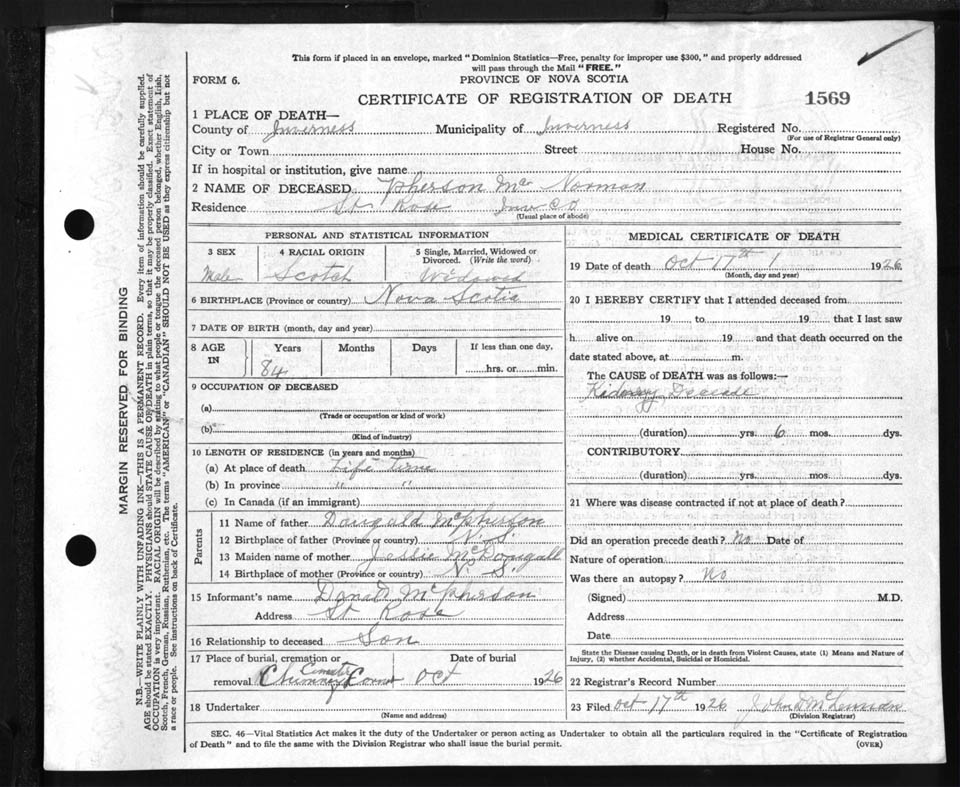 This form if placed in an envelope, marked "Dominion Statistics—Free, penalty for improper use $300," and properly addressed
will pass through the Mail "FREE."
FORM 6.
PROVINCE OF NOVA SCOTIA
CERTIFICATE OF REGISTRATION OF DEATH
1569
1 PLACE OF DEATH—
County of Inverness Municipality of Inverness Registered No.
(For use of Registrar General only)
City or Town Street House No.
If in hospital or institution, give name
2 NAME OF DECEASED Pherson Mc Norman
Residence St Rose Inv Co
(Usual place of abode)
PERSONAL AND STATISTICAL INFORMATION
3 SEX 4 RACIAL ORIGIN 5 Single, Married, Widowed or
Divorced. (Write the word)
Male Scotch Widowed
6 BIRTHPLACE (Province or country) Nova Scotia
7 DATE OF BIRTH (month, day and year)
8 AGE IN Years Months Days If less than one day,
84 hrs. or min.
9 OCCUPATION OF DECEASED
(a)
(Trade or occupation or kind of work)
(b)
(Kind of industry)
10 LENGTH OF RESIDENCE (in years and months)
(a) At place of death Life time
(b) In province " "
(c) In Canada (if an immigrant)
Parents
11 Name of father Dougald McPherson
12 Birthplace of father (Province or country) N. S.
13 Maiden name of mother Jessie McDougall
14 Birthplace of mother (Province or country) N. S.
15 Informant's name Donald McPherson
Address St Rose
16 Relationship to deceased Son
17 Place of burial, cremation or Date of burial
removal Chimney Corner Cemetery Oct 1926
18 Undertaker
(Name and address)
MEDICAL CERTIFICATE OF DEATH
19 Date of death Oct 17th 1926
(Month, day and year)
20 I HEREBY CERTIFY that I attended deceased from
19 to 19 that I last saw
h alive on 19 and that death occurred on the
date stated above, at m.
The CAUSE of DEATH was as follows:—
Kidney
(duration) yrs. 6 mos. dys.
CONTRIBUTORY
(duration) yrs. mos. dys.
21 Where was disease contracted if not at place of death?
Did an operation precede death? No Date of
Nature of operation
Was there an autopsy? No
(Signed) M.D.
Address
Date
State the Disease causing Death, or in death from Violent Causes, state (1) Means and Nature of
Injury, (2) whether Accidental, Suicidal or Homicidal.
22 Registrar's Record Number
23 Filed Oct 17th 1926 John D McLennan
(Division Registrar)
SEC. 46—Vital Statistics Act makes it the duty of the Undertaker or person acting as Undertaker to obtain all the particulars required in the "Certificate of Registration
of Death" and to file the same with the Division Registrar who shall issue the burial permit.
(OVER)
MARGIN RESERVED FOR BINDING
N.B.—WRITE PLAINLY WITH UNFADING INK—THIS IS A PERMANENT RECORD. Every item of information should be carefully supplied.
AGE should be stated EXACTLY. PHYSICIANS should STATE CAUSE OF DEATH in plain terms, so that it may be properly classified. Exact statement of
OCCUPATION is very important. RACIAL ORIGIN will be described by stating to what people or tongue the deceased person belonged, whether English, Irish,
Scotch, French, German, Russian, Ruthenian, etc. The terms "AMERICAN" or "CANADIAN" SHOULD NOT BE USED as they express citizenship but not
a race or people. See instructions on back of Certificate.